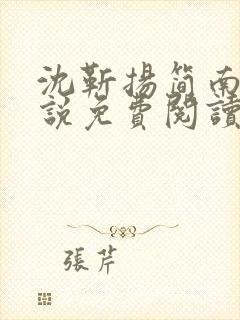 沈靳揚簡南
說免費閱讀
張芹